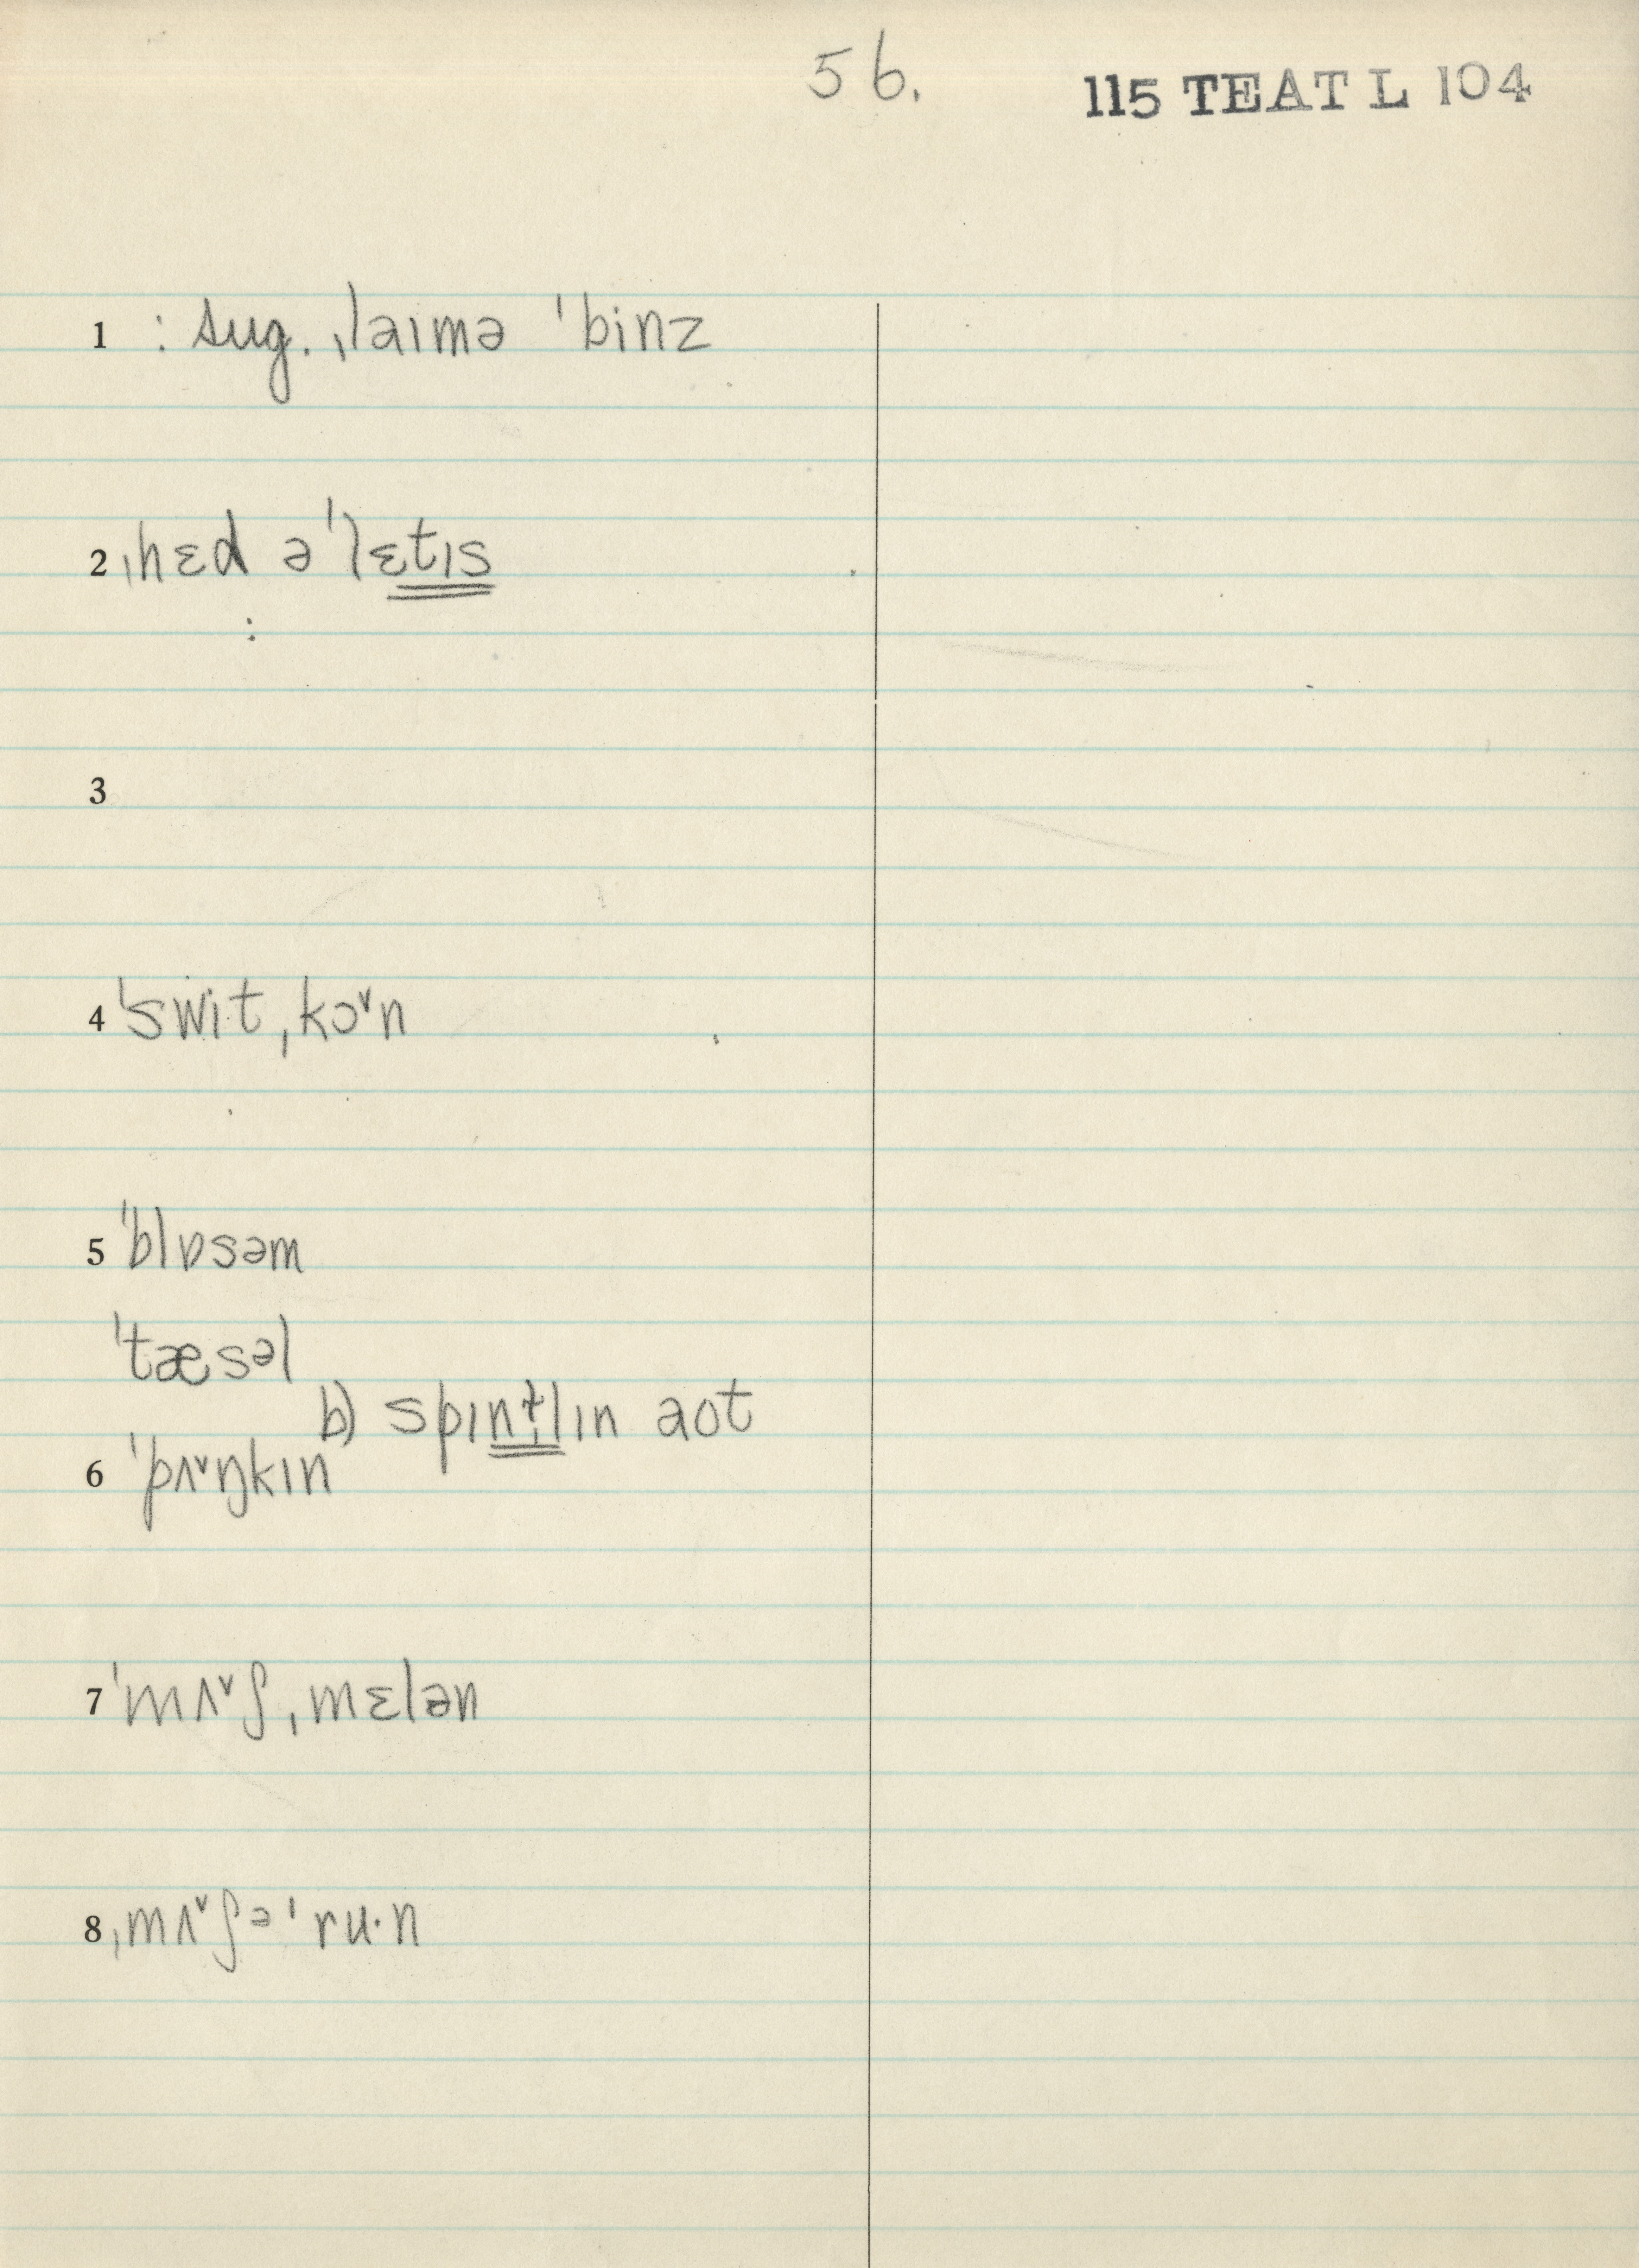 56.
115 TEAT L 104
1 : sug. ˌlaɪmə ˈbinz
2 ˌhɛd əˈlɛtɪs
:
3
4 ˈswit ˌkɔ˅n
5 ˈblɒsəm
ˈtæsəl
b) spɪntlɪn aot
6 ˈpʌ˅ŋkɪn
7 ˈmʌ˅ʃ ˌmɛlən
8 ˌmʌ˅ʃəˈru·n